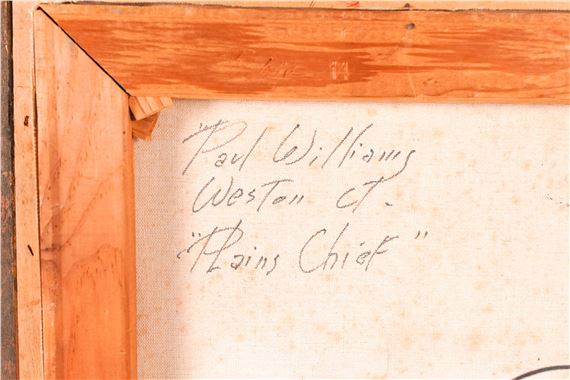 11
Paul Williams
Weston CT.
"Plains Chief"